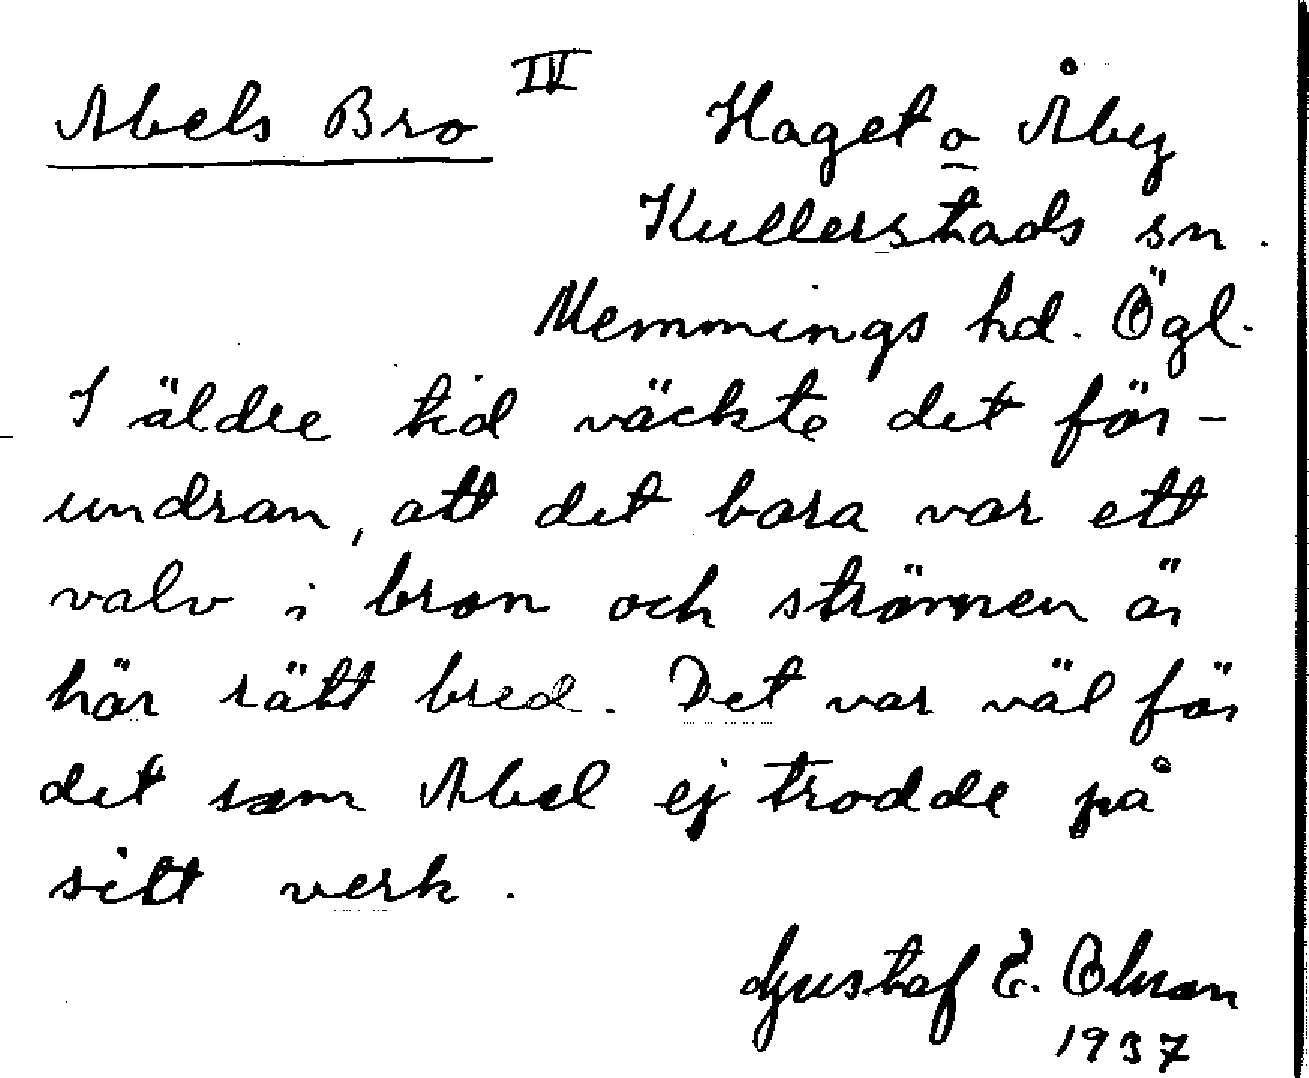 Abels Bro IV
Haget o Åby
Kullerstads sn.
Memmings hd. Ögl.
I äldre tid väckte det för-
undran, att det bara var ett
valv i bron och strömmen är
här rätt bred. Det var väl för
det som Abel ej trodde på
sitt verk.
Gustaf E. Olsson
1937